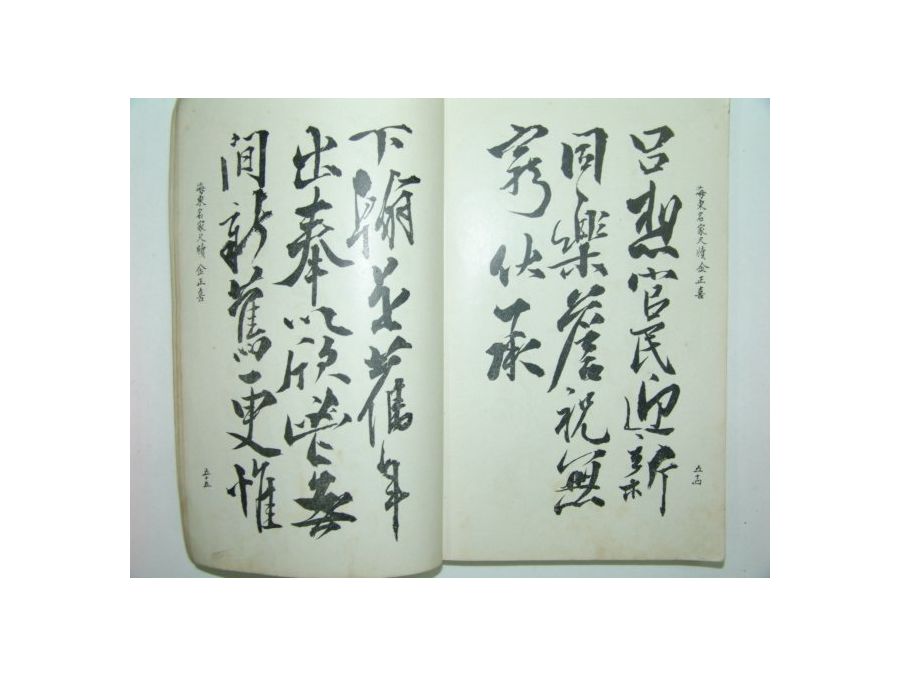 海東名家尺牘 金正喜
五十四
呂想官民迎新
同樂詹祝無
窮伏承
下翰是舊年
出奉以欣豈無
間新舊更惟
海東名家尺牘 金正喜
五十五